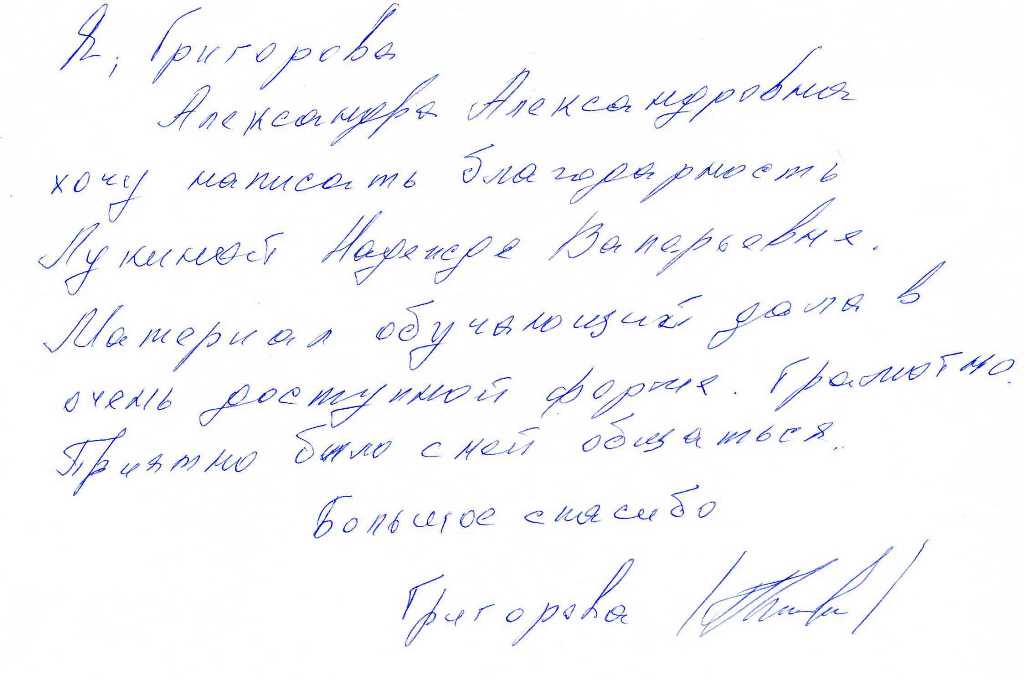 Я, Григорова
Александра Александровна
хочу написать благодарность
Лукиной Надежде Валерьевне.
Материал обучающий дала в
очень доступной форме. Грамотно.
Приятно было с ней общаться.
Большое спасибо
Григорова